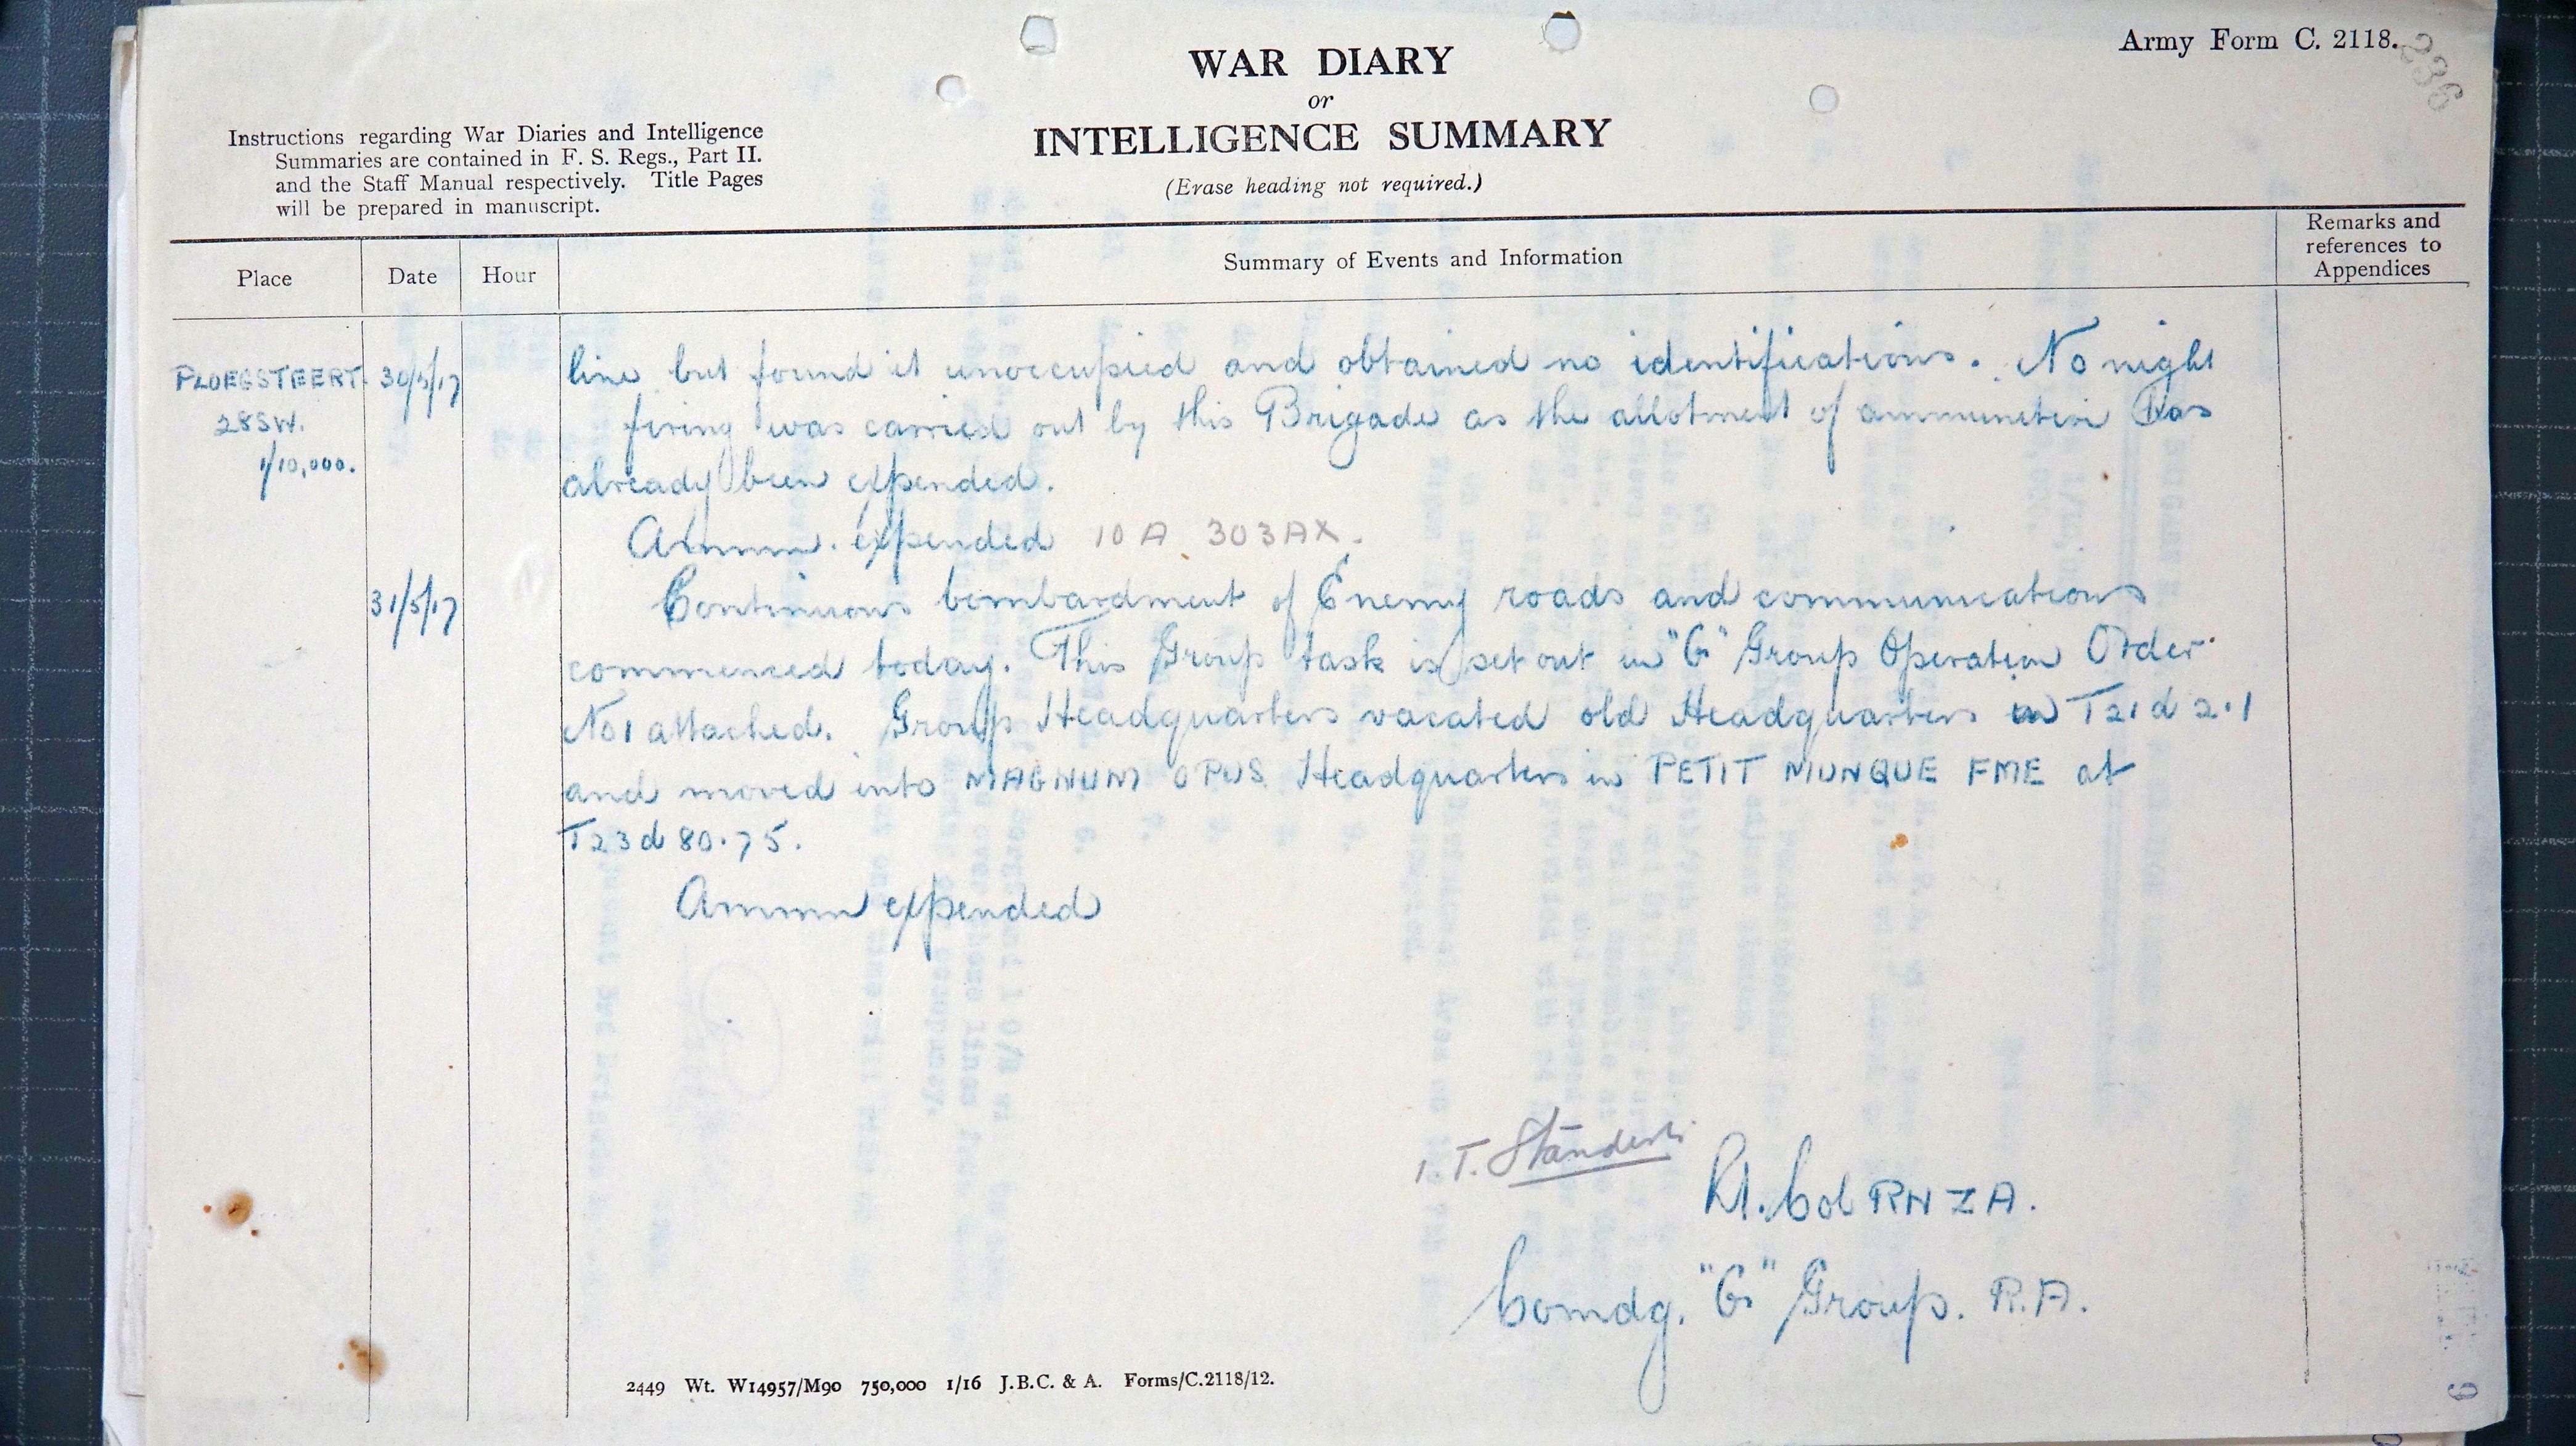 Army Form C. 2118.
236
WAR DIARY
or
INTELLIGENCE SUMMARY
(Erase heading not required.)
Instructions regarding War Diaries and Intelligence
Summaries are contained in F. S. Regs., Part II.
and the Staff Manual respectively. Title Pages
will be prepared in manuscript.
Place
Date
Hour
Summary of Events and Information
Remarks and
references to
Appendices
PLOEGSTEERT
28SW.
1/10,000.
30/5/17
line but found it unoccupied and obtained no identifications. No night
firing was carried out by this Brigade as the allotment of ammunition has
already been expended.
Ammn. expended 10 A 303 AX.
31/5/17
Continuous bombardment of Enemy roads and communications
commenced today. This Group task is set out in "G" Group Operation Order
No 1 attached. Group Headquarters vacated old Headquarters in T21 d 2.1
and moved into MAGNUM OPUS Headquarters in PETIT MUNQUE FME at
T23d 80.75.
Ammn expended
I. T. Standish
Lt. Col RNZA.
Comdg. "G" Group. R.A.
2449 Wt. W14957/M90 750,000 1/16 J.B.C. & A. Forms/C.2118/12.